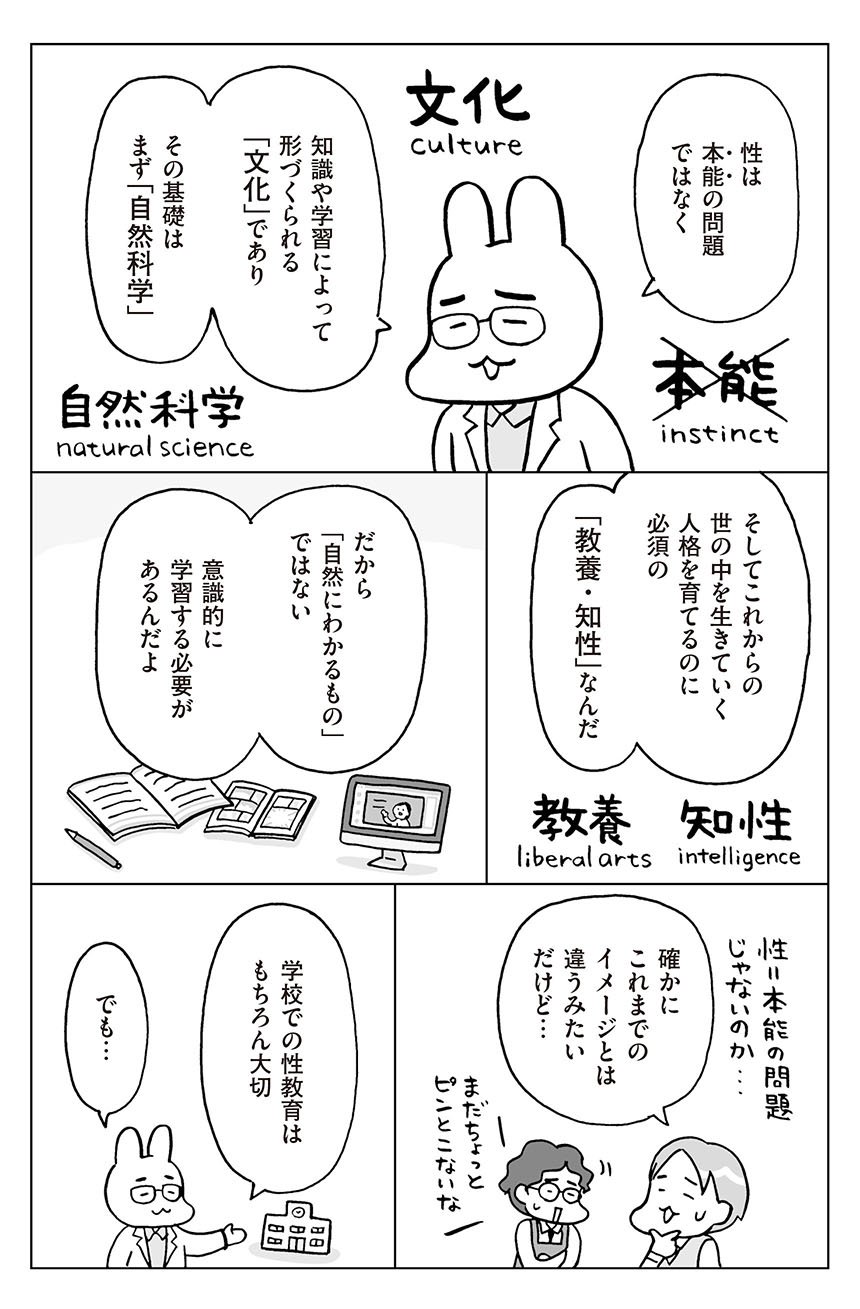 性は
本能の問題
ではなく
本能
instinct
文化
culture
知識や学習によって
形づくられる
「文化」であり
その基礎は
まず「自然科学」
自然科学
natural science
そしてこれからの
世の中を生きていく
人格を育てるのに
必須の
「教養・知性」なんだ
教養
liberal arts
知性
intelligence
だから
「自然にわかるもの」
ではない
意識的に
学習する必要が
あるんだよ
性=本能の問題
じゃないのか…
確かに
これまでの
イメージとは
違うみたい
だけど…
まだちょっと
ピンとこないな
学校での性教育は
もちろん大切
でも…